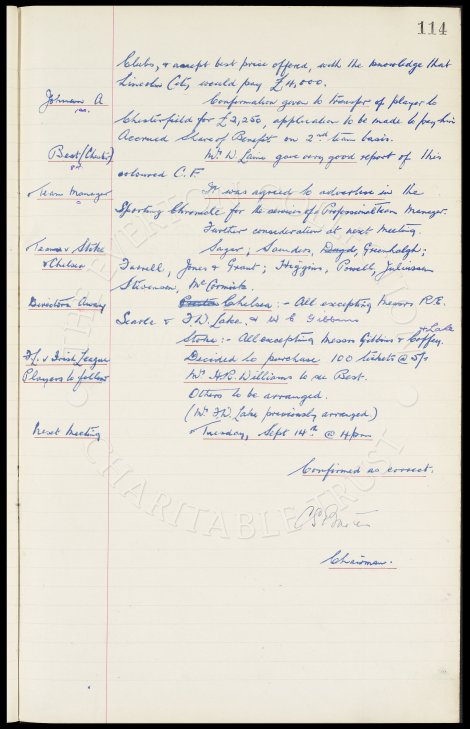 114
Clubs, & accept best price offered, with the knowledge that
Lincoln City would pay £4,000.
Johnson A
Confirmation given to transfer of player to
Chesterfield for £2,250, application to be made to pay him
Accrued Share of Benefit on 2nd team basis.
Best (Chester)
Mr. W. Laine gave very good report of this
coloured C.F.
Team Manager
It was agreed to advertise in the
Sporting Chronicle for the services of Professional Team Manager.
Further consideration at next meeting.
Teams v Stoke
Sagar; Saunders, Greenhalgh;
& Chelsea
Farrell, Jones & Grant; Higgins, Powell, Juliussen
Stevenson, McCormick.
Directors Away
Chelsea:- All excepting Messrs R.R.
Searle & T.W. Lake. & W C Gibbins
Stoke:- All excepting Messrs Gibbins & Coffey. & Lake
F/L. v Irish League
Decided to purchase 100 tickets @ 5/s
Players to follow
Mr. H.B. Williams to see Best.
Others to be arranged.
(Mr. T.W. Lake previously arranged)
Next Meeting
Tuesday, Sept 14th @ 4pm
Confirmed as correct.
Chairman.
THE EVERTON
CHARITABLE TRUST